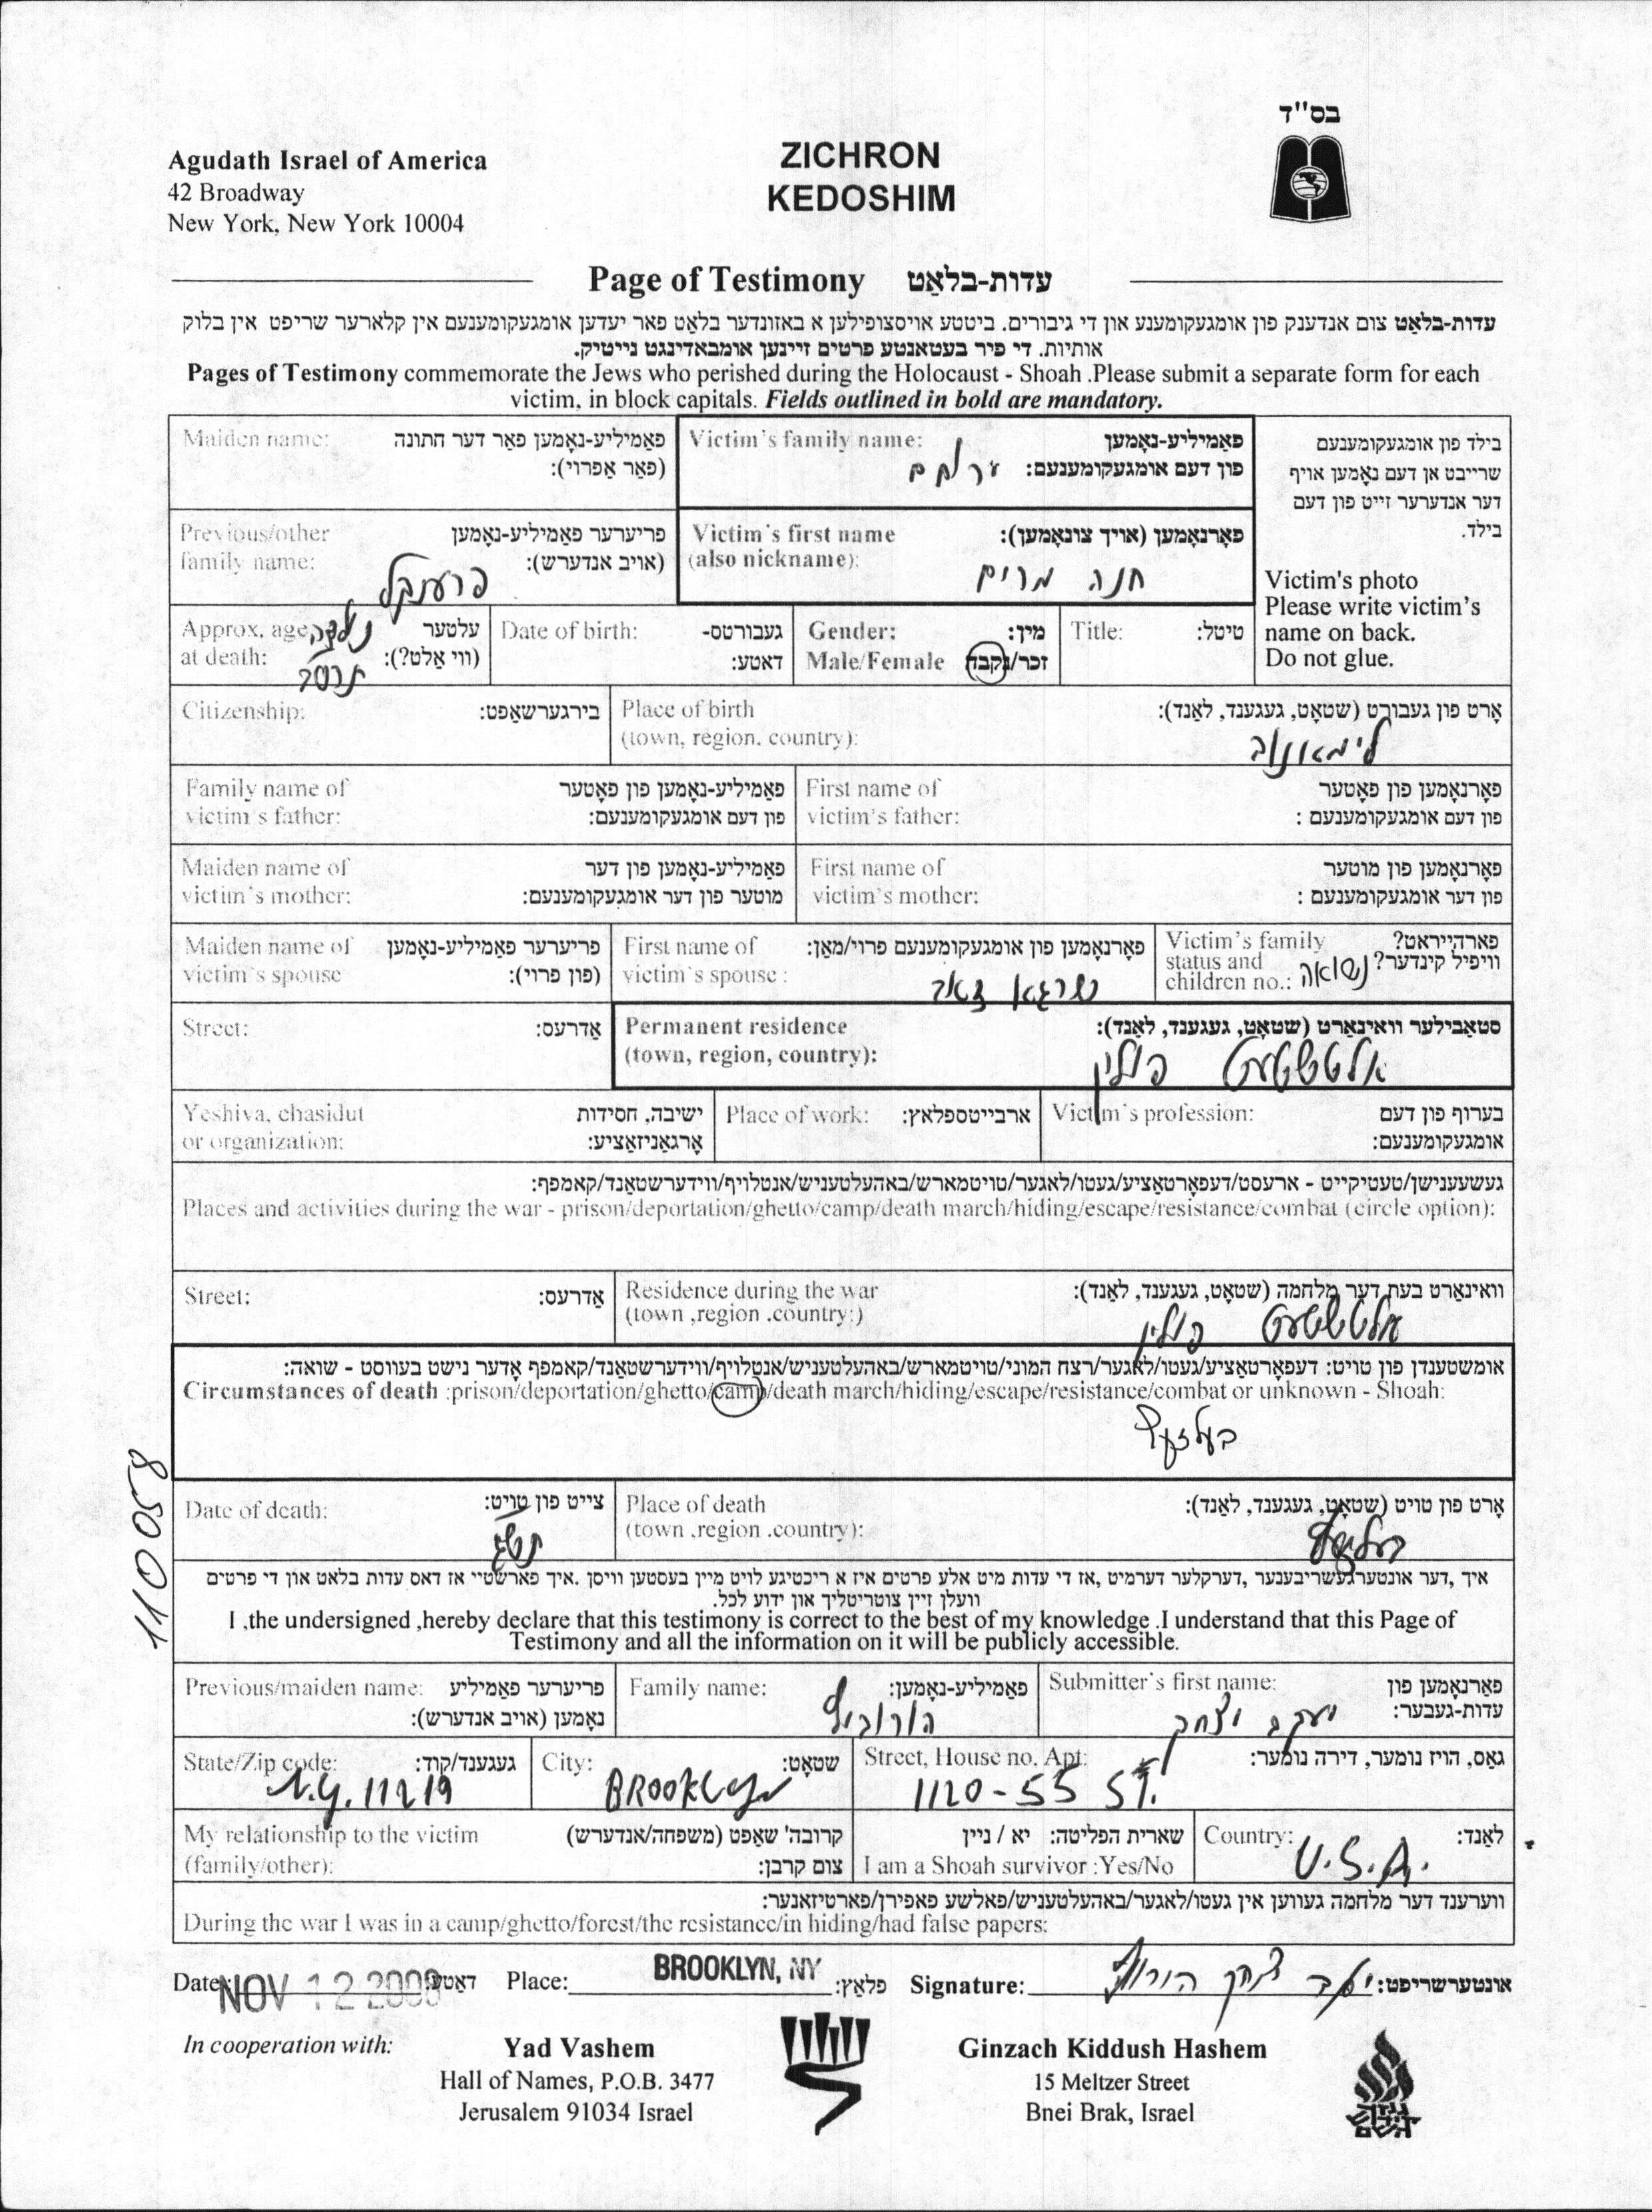 בס"ד
Agudath Israel of America
42 Broadway
New York, New York 10004
ZICHRON
KEDOSHIM
Page of Testimony עדות-בלאַט
עדות-בלאַט צום אנדענק פון אומגעקומענע און די גיבורים. ביטטע אויסצופילען א באזונדער בלאַט פאר יעדען אומגעקומענעם אין קלארער שריפט אין בלוק
אותיות. די פיר בעטאנטע פרטים זיינען אומבאדינגט נייטיק.
Pages of Testimony commemorate the Jews who perished during the Holocaust - Shoah .Please submit a separate form for each
victim, in block capitals. Fields outlined in bold are mandatory.
Maiden name: פאַמיליע-נאָמען פאַר דער חתונה
(פאַר אַפרוי):
Victim's family name: פאַמיליע-נאָמען
פון דעם אומגעקומענעם:
בילד פון אומגעקומענעם
שרייבט אן דעם נאָמען אויף
דער אנדערער זייט פון דעם
בילד.
Victim's photo
Please write victim's
name on back.
Do not glue.
Previous/other פריערער פאַמיליע-נאָמען
family name: (אויב אנדערש):
פרענקל
Victim's first name פאָרנאָמען (אויך צונאָמען):
(also nickname):
חנה מרים
Approx, age עלטער
at death: (ווי אַלט?):
נולדה
Date of birth: געבורטס-
דאטע:
Gender: מין:
Male/Female זכר/נקבה
Title: טיטל:
Citizenship: בירגערשאַפט:
Place of birth אָרט פון געבורט (שטאָט, געגענד, לאַנד):
(town, region. country):
לימאנוב
Family name of פאַמיליע-נאָמען פון פאָטער
victim's father: פון דעם אומגעקומענעם:
First name of פאָרנאָמען פון פאָטער
victim's father: פון דעם אומגעקומענעם :
Maiden name of פאַמיליע-נאָמען פון דער
victim's mother: מוטער פון דער אומגעקומענעם:
First name of פאָרנאָמען פון מוטער
victim's mother: פון דער אומגעקומענעם :
Maiden name of פריערער פאַמיליע-נאָמען
victim's spouse (פון פרוי):
First name of פאָרנאָמען פון אומגעקומענעם פרוי/מאַן:
victim's spouse :
שרגא זאב
Victim's family פארהייראט?
status and וויפיל קינדער?
children no.: נשואה
Street: אַדרעס:
Permanent residence סטאַבילער וואינאָרט (שטאָט, געגענד, לאַנד):
(town, region, country):
אלטשטעט פולין
Yeshiva, chasidut ישיבה, חסידות
or organization: אָרגאַניזאַציע:
Place of work: ארבייטספלאץ:
Victim's profession: בערוף פון דעם
אומגעקומענעם:
געשעענישן/טעטיקייט - ארעסט/דעפאָרטאַציע/געטו/לאגער/טויטמארש/באהעלטעניש/אנטלויף/ווידערשטאַנד/קאמפף:
Places and activities during the war - prison/deportation/ghetto/camp/death march/hiding/escape/resistance/combat (circle option):
Street: אַדרעס:
Residence during the war וואינאַרט בעת דער מלחמה (שטאָט, געגענד, לאַנד):
(town ,region .country:)
אלטשטעט פולין
אומשטענדן פון טויט: דעפאָרטאַציע/געטו/לאגער/רצח המוני/טויטמארש/באהעלטעניש/אנטלויף/ווידערשטאַנד/קאמפף אָדער נישט בעווסט - שואה:
Circumstances of death :prison/deportation/ghetto/camp/death march/hiding/escape/resistance/combat or unknown - Shoah:
בעלזעץ
110058
Date of death: צייט פון טויט:
תש"ג
Place of death אָרט פון טויט (שטאָט, געגענד, לאַנד):
(town .region .country):
איך ,דער אונטערגעשריבענער ,דערקלער דערמיט ,אז די עדות מיט אלע פרטים איז א ריכטיגע לויט מיין בעסטען וויסן .איך פארשטיי אז דאס עדות בלאט און די פרטים
וועלן זיין צוטריטליך און ידוע לכל.
I ,the undersigned ,hereby declare that this testimony is correct to the best of my knowledge .I understand that this Page of
Testimony and all the information on it will be publicly accessible.
Previous/maiden name: פריערער פאַמיליע
נאָמען (אויב אנדערש):
Family name: פאַמיליע-נאָמען:
הורוביץ
Submitter's first name: פאָרנאָמען פון
עדות-געבער:
יעקב יצחק
State/Zip code: געגענד/קוד:
N.Y. 11219
City: שטאָט:
BROOKLYN
Street, House no. Apt: גאַס, הויז נומער, דירה נומער:
1120-55 ST.
My relationship to the victim קרובה' שאַפט (משפחה/אנדערש)
(family/other): צום קרבן:
שארית הפליטה: יא / ניין
I am a Shoah survivor :Yes/No
Country: לאַנד:
U.S.A.
ווערענד דער מלחמה געווען אין געטו/לאגער/באהעלטעניש/פאלשע פאפירן/פארטיזאנער:
During the war I was in a camp/ghetto/forest/the resistance/in hiding/had false papers:
Date: NOV 12 2008 דאַטע Place: BROOKLYN, NY פלאַץ: Signature: יעקב יצחק הורוביץ אונטערשריפט:
In cooperation with:
Yad Vashem
Hall of Names, P.O.B. 3477
Jerusalem 91034 Israel
Ginzach Kiddush Hashem
15 Meltzer Street
Bnei Brak, Israel
גנזך
קידוש
השם